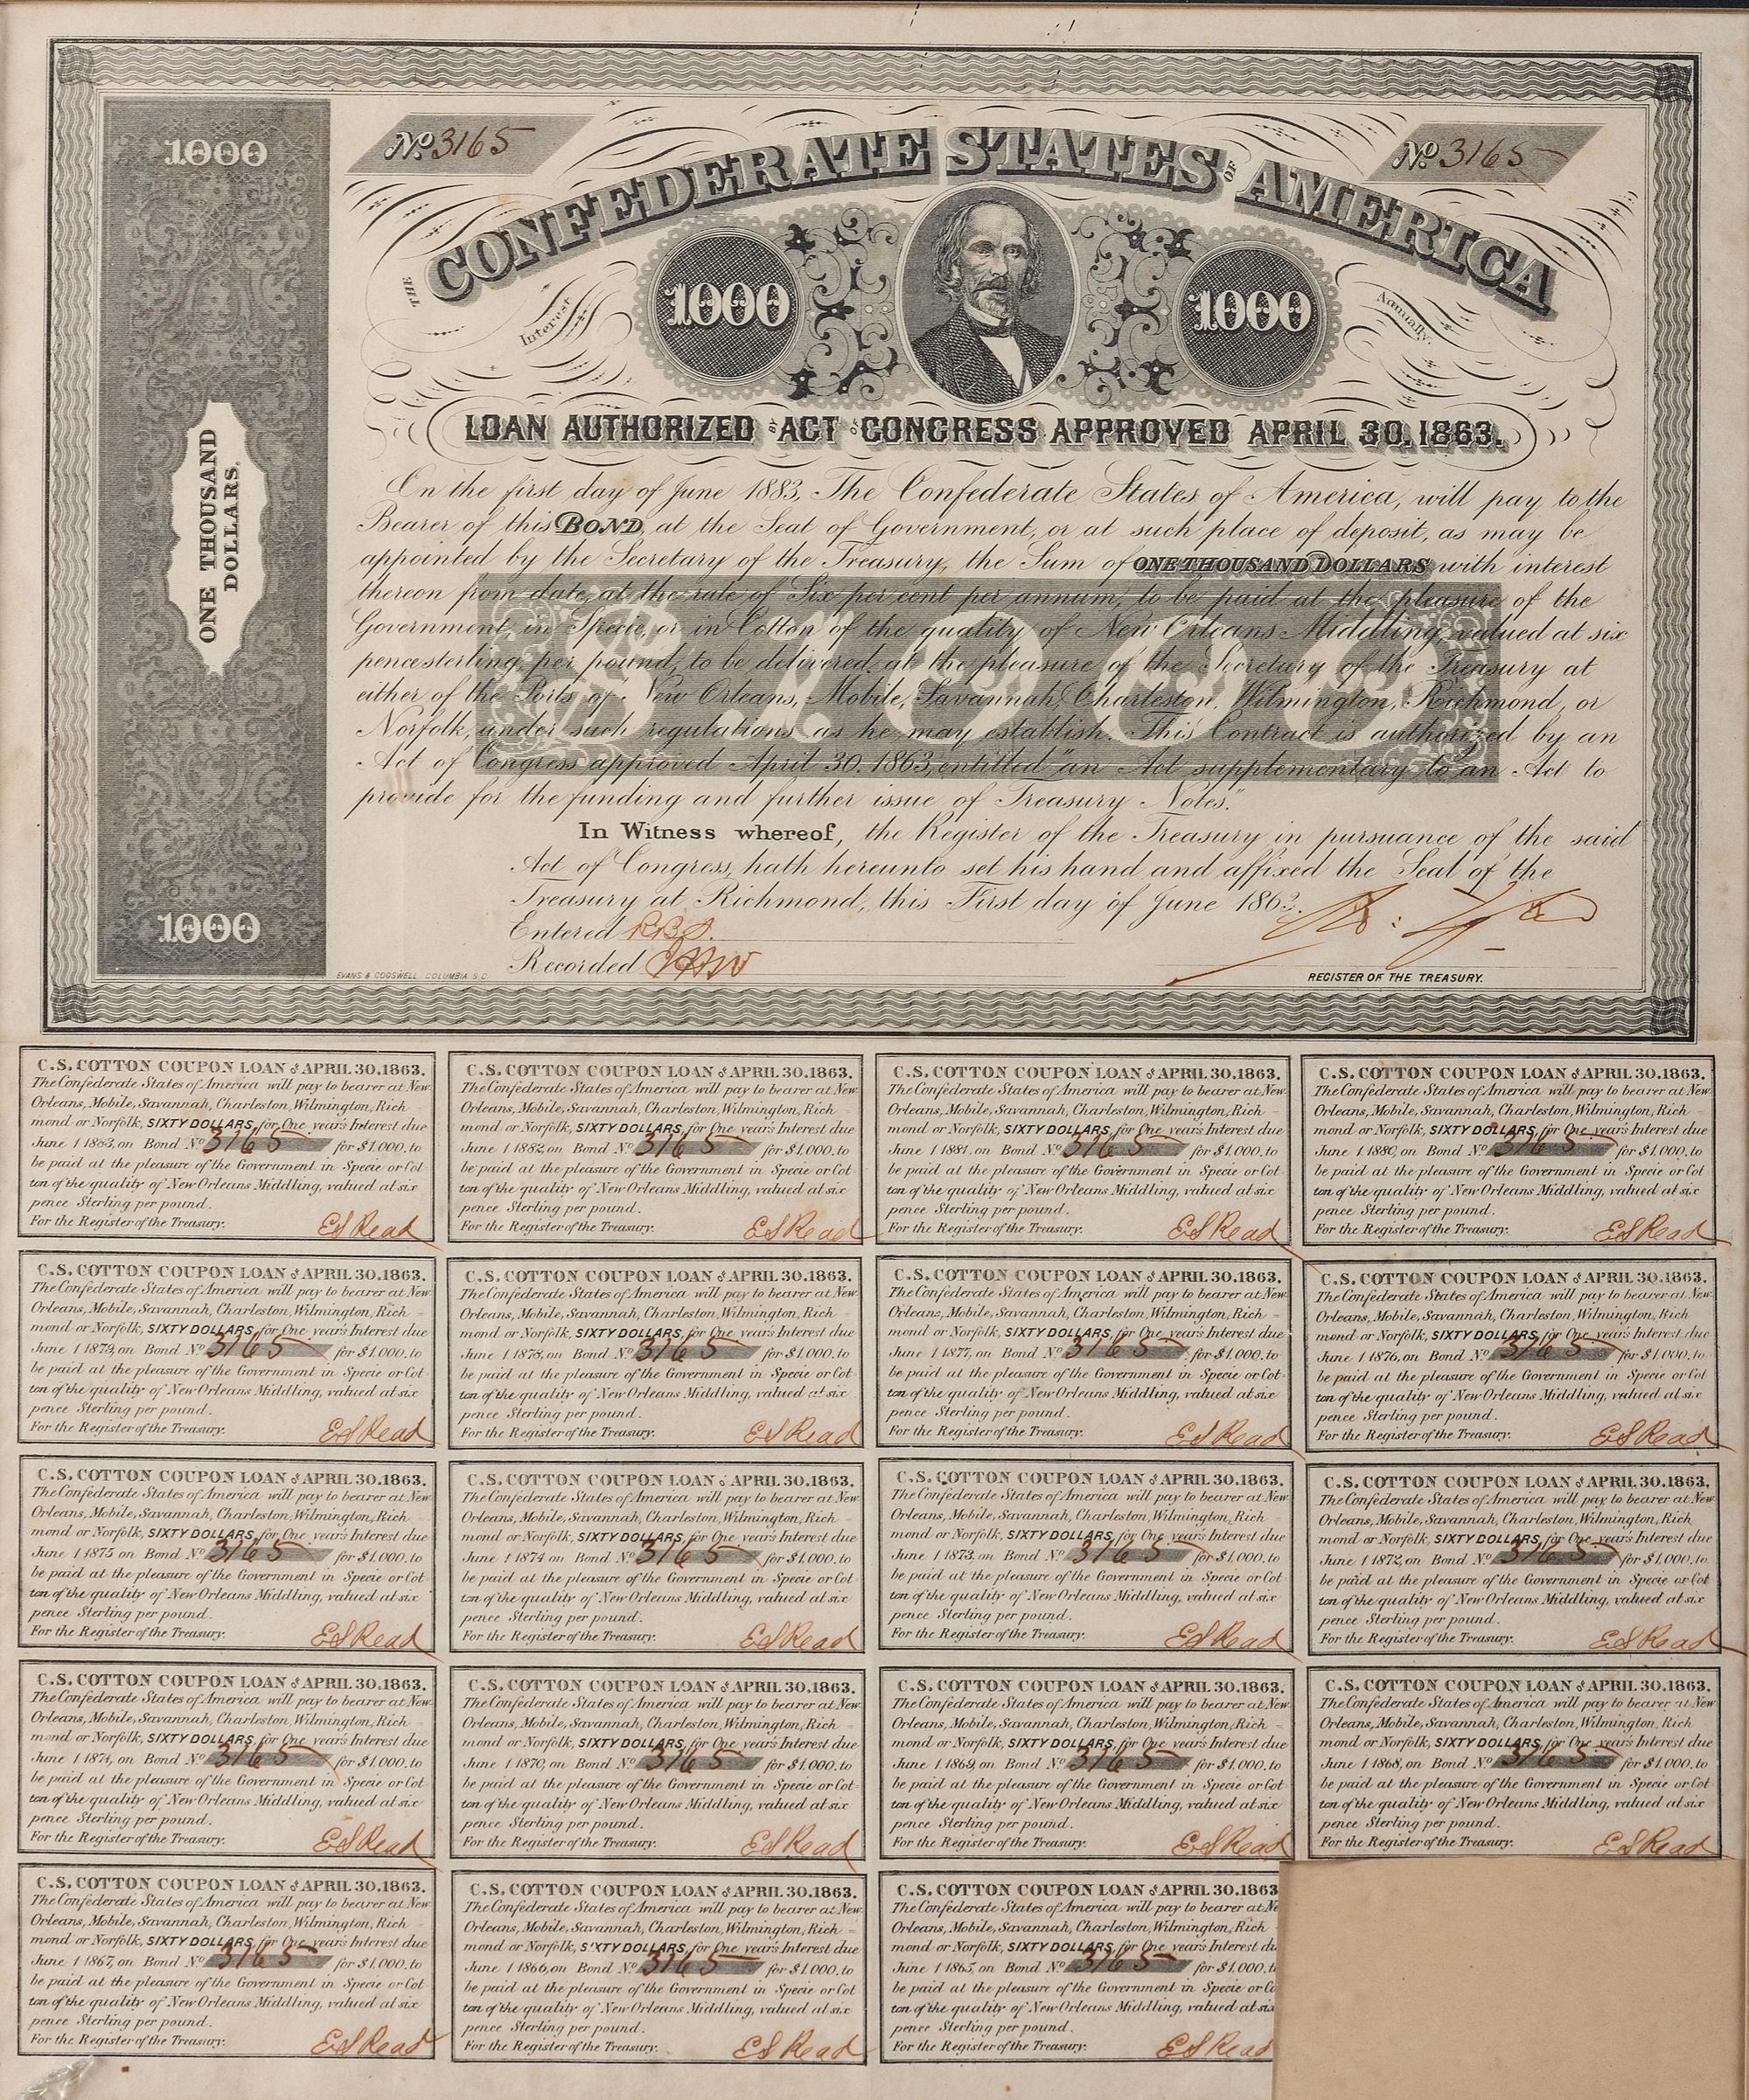 1000
ONE THOUSAND
DOLLARS.
1000
No 3165
No 3165
THE CONFEDERATE STATES OF AMERICA
Interest
Annually.
1000
1000
LOAN AUTHORIZED BY ACT OF CONGRESS APPROVED APRIL 30, 1863.
On the first day of June 1883, The Confederate States of America, will pay to the
Bearer of this BOND, at the Seat of Government, or at such place of deposit, as may be
appointed by the Secretary of the Treasury, the Sum of ONE THOUSAND DOLLARS with interest
thereon from date, at the rate of Six per cent per annum, to be paid at the pleasure of the
Government, in Specie, or in Cotton of the quality of New Orleans Middling, valued at six
pence sterling, per pound, to be delivered, at the pleasure of the Secretary of the Treasury at
either of the Ports of New Orleans, Mobile, Savannah, Charleston, Wilmington, Richmond, or
Norfolk, under such regulations as he may establish. This Contract is authorized by an
Act of Congress approved April 30. 1863, entitled "an Act supplementary to an Act to
provide for the funding and further issue of Treasury Notes."
$1000
In Witness whereof, the Register of the Treasury in pursuance of the said
Act of Congress, hath hereunto set his hand and affixed the Seal of the
Treasury at Richmond, this First day of June 1863.
Entered
Recorded
EVANS & COGSWELL COLUMBIA S.C.
REGISTER OF THE TREASURY.
C.S. COTTON COUPON LOAN of APRIL 30. 1863.
The Confederate States of America will pay to bearer at New
Orleans, Mobile, Savannah, Charleston, Wilmington, Rich
mond or Norfolk, SIXTY DOLLARS, for One year's Interest due
June 1 1883, on Bond No 3165 for $1,000, to
be paid at the pleasure of the Government in Specie or Cot
ton of the quality of New Orleans Middling, valued at six
pence Sterling per pound.
For the Register of the Treasury. E S Read
C.S. COTTON COUPON LOAN of APRIL 30. 1863.
The Confederate States of America will pay to bearer at New
Orleans, Mobile, Savannah, Charleston, Wilmington, Rich -
mond or Norfolk, SIXTY DOLLARS, for One year's Interest due
June 1 1882, on Bond No 3165 for $1,000, to
be paid at the pleasure of the Government in Specie or Cot
ton of the quality of New Orleans Middling, valued at six
pence Sterling per pound.
For the Register of the Treasury. E S Read
C.S. COTTON COUPON LOAN of APRIL 30. 1863.
The Confederate States of America will pay to bearer at New
Orleans, Mobile, Savannah, Charleston, Wilmington, Rich -
mond or Norfolk, SIXTY DOLLARS, for One year's Interest due
June 1 1881, on Bond No 3165 for $1,000, to
be paid at the pleasure of the Government in Specie or Cot
ton of the quality of New Orleans Middling, valued at six
pence Sterling per pound.
For the Register of the Treasury. E S Read
C.S. COTTON COUPON LOAN of APRIL 30. 1863.
The Confederate States of America will pay to bearer at New
Orleans, Mobile, Savannah, Charleston, Wilmington, Rich -
mond or Norfolk, SIXTY DOLLARS, for One year's Interest due
June 1 1880, on Bond No 3165 for $1,000, to
be paid at the pleasure of the Government in Specie or Cot
ton of the quality of New Orleans Middling, valued at six
pence Sterling per pound.
For the Register of the Treasury. E S Read
C.S. COTTON COUPON LOAN of APRIL 30. 1863.
The Confederate States of America will pay to bearer at New
Orleans, Mobile, Savannah, Charleston, Wilmington, Rich -
mond or Norfolk, SIXTY DOLLARS, for One year's Interest due
June 1 1879, on Bond No 3165 for $1,000, to
be paid at the pleasure of the Government in Specie or Cot
ton of the quality of New Orleans Middling, valued at six
pence Sterling per pound.
For the Register of the Treasury. E S Read
C.S. COTTON COUPON LOAN of APRIL 30. 1863.
The Confederate States of America will pay to bearer at New
Orleans, Mobile, Savannah, Charleston, Wilmington, Rich -
mond or Norfolk, SIXTY DOLLARS, for One year's Interest due
June 1 1878, on Bond No 3165 for $1,000, to
be paid at the pleasure of the Government in Specie or Cot
ton of the quality of New Orleans Middling, valued at six
pence Sterling per pound.
For the Register of the Treasury. E S Read
C.S. COTTON COUPON LOAN of APRIL 30. 1863.
The Confederate States of America will pay to bearer at New
Orleans, Mobile, Savannah, Charleston, Wilmington, Rich -
mond or Norfolk, SIXTY DOLLARS, for One year's Interest due
June 1 1877, on Bond No 3165 for $1,000, to
be paid at the pleasure of the Government in Specie or Cot-
ton of the quality of New Orleans Middling, valued at six
pence Sterling per pound.
For the Register of the Treasury. E S Read
C.S. COTTON COUPON LOAN of APRIL 30. 1863.
The Confederate States of America will pay to bearer at New
Orleans, Mobile, Savannah, Charleston, Wilmington, Rich
mond or Norfolk, SIXTY DOLLARS, for One year's Interest due
June 1 1876, on Bond No 3165 for $1,000, to
be paid at the pleasure of the Government in Specie or Cot
ton of the quality of New Orleans Middling, valued at six
pence Sterling per pound.
For the Register of the Treasury. E S Read
C.S. COTTON COUPON LOAN of APRIL 30. 1863.
The Confederate States of America will pay to bearer at New
Orleans, Mobile, Savannah, Charleston, Wilmington, Rich -
mond or Norfolk, SIXTY DOLLARS, for One year's Interest due
June 1 1875 on Bond No 3165 for $1,000, to
be paid at the pleasure of the Government in Specie or Cot
ton of the quality of New Orleans Middling, valued at six
pence Sterling per pound.
For the Register of the Treasury. E S Read
C.S. COTTON COUPON LOAN of APRIL 30. 1863.
The Confederate States of America will pay to bearer at New
Orleans, Mobile, Savannah, Charleston, Wilmington, Rich -
mond or Norfolk, SIXTY DOLLARS, for One year's Interest due
June 1 1874 on Bond No 3165 for $1,000, to
be paid at the pleasure of the Government in Specie or Cot
ton of the quality of New Orleans Middling, valued at six
pence Sterling per pound.
For the Register of the Treasury. E S Read
C.S. COTTON COUPON LOAN of APRIL 30. 1863.
The Confederate States of America will pay to bearer at New
Orleans, Mobile, Savannah, Charleston, Wilmington, Rich -
mond or Norfolk, SIXTY DOLLARS, for One year's Interest due
June 1 1873, on Bond No 3165 for $1,000, to
be paid at the pleasure of the Government in Specie or Cot
ton of the quality of New Orleans Middling, valued at six
pence Sterling per pound.
For the Register of the Treasury. E S Read
C.S. COTTON COUPON LOAN of APRIL 30. 1863.
The Confederate States of America will pay to bearer at New
Orleans, Mobile, Savannah, Charleston, Wilmington, Rich
mond or Norfolk, SIXTY DOLLARS, for One year's Interest due
June 1 1872, on Bond No 3165 for $1,000, to
be paid at the pleasure of the Government in Specie or Cot
ton of the quality of New Orleans Middling, valued at six
pence Sterling per pound.
For the Register of the Treasury. E S Read
C.S. COTTON COUPON LOAN of APRIL 30. 1863.
The Confederate States of America will pay to bearer at New
Orleans, Mobile, Savannah, Charleston, Wilmington, Rich -
mond or Norfolk, SIXTY DOLLARS, for One year's Interest due
June 1 1871, on Bond No 3165 for $1,000, to
be paid at the pleasure of the Government in Specie or Cot
ton of the quality of New Orleans Middling, valued at six
pence Sterling per pound.
For the Register of the Treasury. E S Read
C.S. COTTON COUPON LOAN of APRIL 30. 1863.
The Confederate States of America will pay to bearer at New
Orleans, Mobile, Savannah, Charleston, Wilmington, Rich -
mond or Norfolk, SIXTY DOLLARS, for One year's Interest due
June 1 1870, on Bond No 3165 for $1,000, to
be paid at the pleasure of the Government in Specie or Cot-
ton of the quality of New Orleans Middling, valued at six
pence Sterling per pound.
For the Register of the Treasury. E S Read
C.S. COTTON COUPON LOAN of APRIL 30. 1863.
The Confederate States of America will pay to bearer at New
Orleans, Mobile, Savannah, Charleston, Wilmington, Rich -
mond or Norfolk, SIXTY DOLLARS, for One year's Interest due
June 1 1869, on Bond No 3165 for $1,000, to
be paid at the pleasure of the Government in Specie or Cot
ton of the quality of New Orleans Middling, valued at six
pence Sterling per pound.
For the Register of the Treasury. E S Read
C.S. COTTON COUPON LOAN of APRIL 30. 1863.
The Confederate States of America will pay to bearer at New
Orleans, Mobile, Savannah, Charleston, Wilmington, Rich
mond or Norfolk, SIXTY DOLLARS, for One year's Interest due
June 1 1868, on Bond No 3165 for $1,000, to
be paid at the pleasure of the Government in Specie or Cot
ton of the quality of New Orleans Middling, valued at six
pence Sterling per pound.
For the Register of the Treasury. E S Read
C.S. COTTON COUPON LOAN of APRIL 30. 1863.
The Confederate States of America will pay to bearer at New
Orleans, Mobile, Savannah, Charleston, Wilmington, Rich -
mond or Norfolk, SIXTY DOLLARS, for One year's Interest due
June 1 1867, on Bond No 3165 for $1,000, to
be paid at the pleasure of the Government in Specie or Cot
ton of the quality of New Orleans Middling, valued at six
pence Sterling per pound.
For the Register of the Treasury. E S Read
C.S. COTTON COUPON LOAN of APRIL 30. 1863.
The Confederate States of America will pay to bearer at New
Orleans, Mobile, Savannah, Charleston, Wilmington, Rich -
mond or Norfolk, SIXTY DOLLARS, for One year's Interest due
June 1 1866, on Bond No 3165 for $1,000, to
be paid at the pleasure of the Government in Specie or Cot
ton of the quality of New Orleans Middling, valued at six
pence Sterling per pound.
For the Register of the Treasury. E S Read
C.S. COTTON COUPON LOAN of APRIL 30. 1863
The Confederate States of America will pay to bearer at Ne
Orleans, Mobile, Savannah, Charleston, Wilmington, Rich
mond or Norfolk, SIXTY DOLLARS, for One year's Interest du
June 1 1865, on Bond No 3165 for $1,000, t
be paid at the pleasure of the Government in Specie or Co
ton of the quality of New Orleans Middling, valued at six
pence Sterling per pound.
For the Register of the Treasury. E S Read